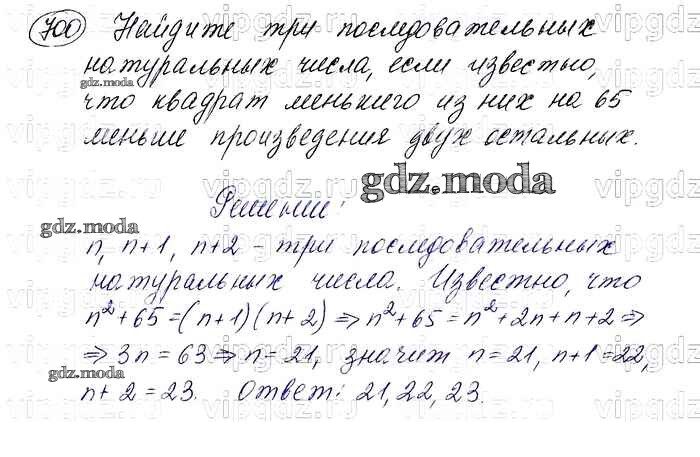 700 Найдите три последовательных
натуральных числа, если известно,
gdz.moda
что квадрат меньшего из них на 65
меньше произведения двух остальных.
gdz.moda
Решение:
gdz.moda
n, n+1, n+2 - три последовательных
натуральных числа. Известно, что
n²+65=(n+1)(n+2) ⇒ n²+65=n²+2n+n+2 ⇒
⇒ 3n=63 ⇒ n=21, значит n=21, n+1=22,
gdz.moda
n+2=23. Ответ: 21, 22, 23.